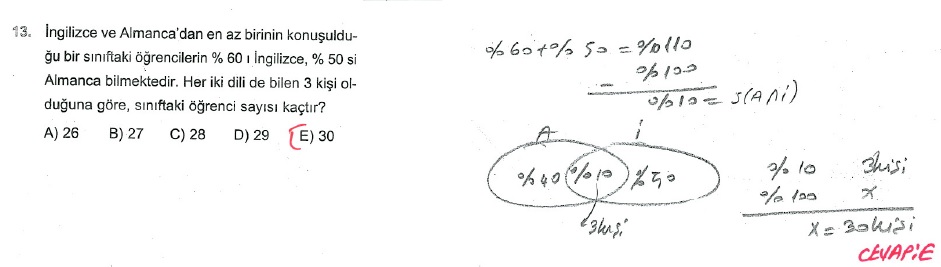 13. İngilizce ve Almanca'dan en az birinin konuşuldu-
ğu bir sınıftaki öğrencilerin % 60 ı İngilizce, % 50 si
Almanca bilmektedir. Her iki dili de bilen 3 kişi ol-
duğuna göre, sınıftaki öğrenci sayısı kaçtır?
A) 26 B) 27 C) 28 D) 29 E) 30
%60+%50=%110
- %100
%10=s(A∩i)
A i
%40 %10 %50
3kişi
%10 3kişi
%100 x
x=30kişi
CEVAP:E